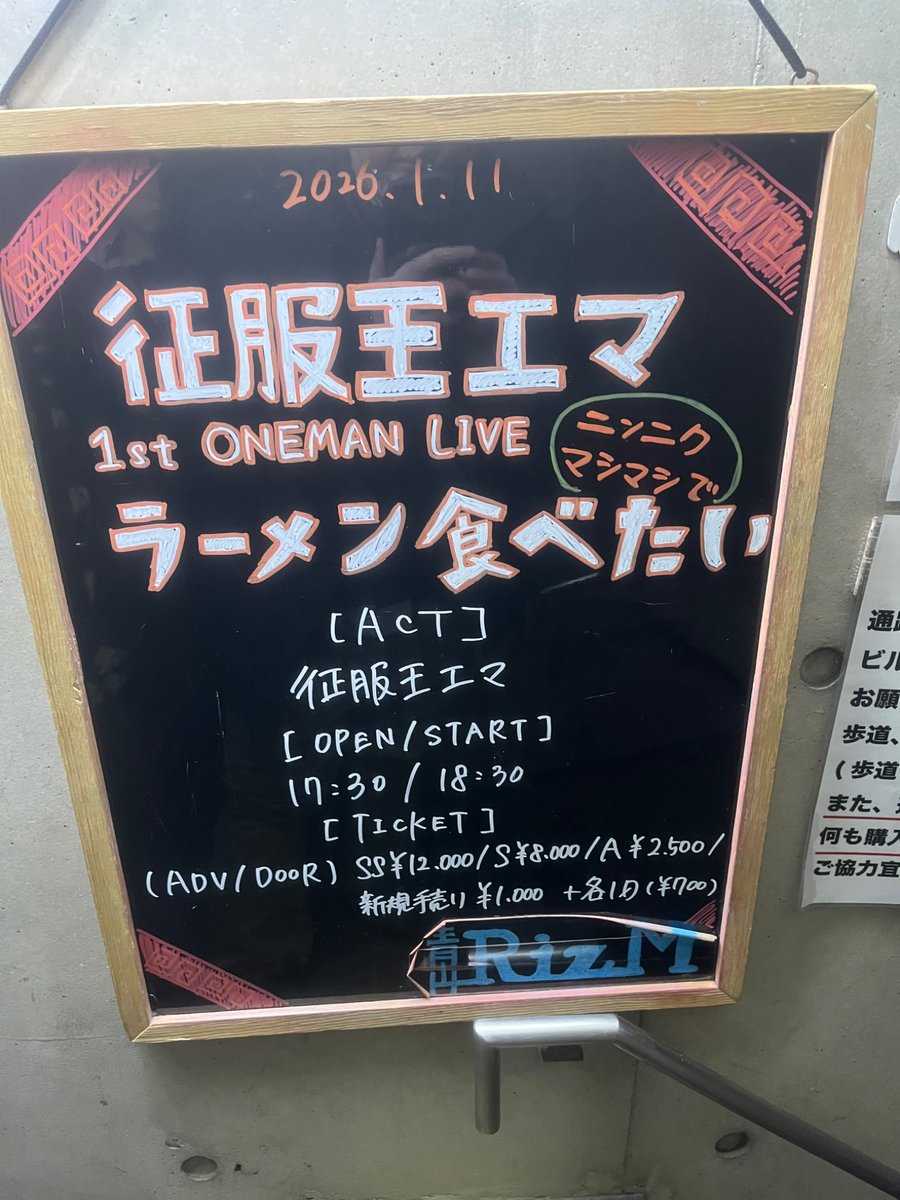 2026.1.11
征服王エマ
1st ONEMAN LIVE
ニンニク
マシマシで
ラーメン食べたい
[ACT]
征服王エマ
[OPEN/START]
17:30 / 18:30
[TICKET]
(ADV/DOOR) SS¥12.000/S¥8.000/A ¥2.500/
新規手売り ¥1.000 +各1D(¥700)
青山 RizM
通路
ビル
お願
歩道、
(歩道
また、
何も購入
ご協力宜